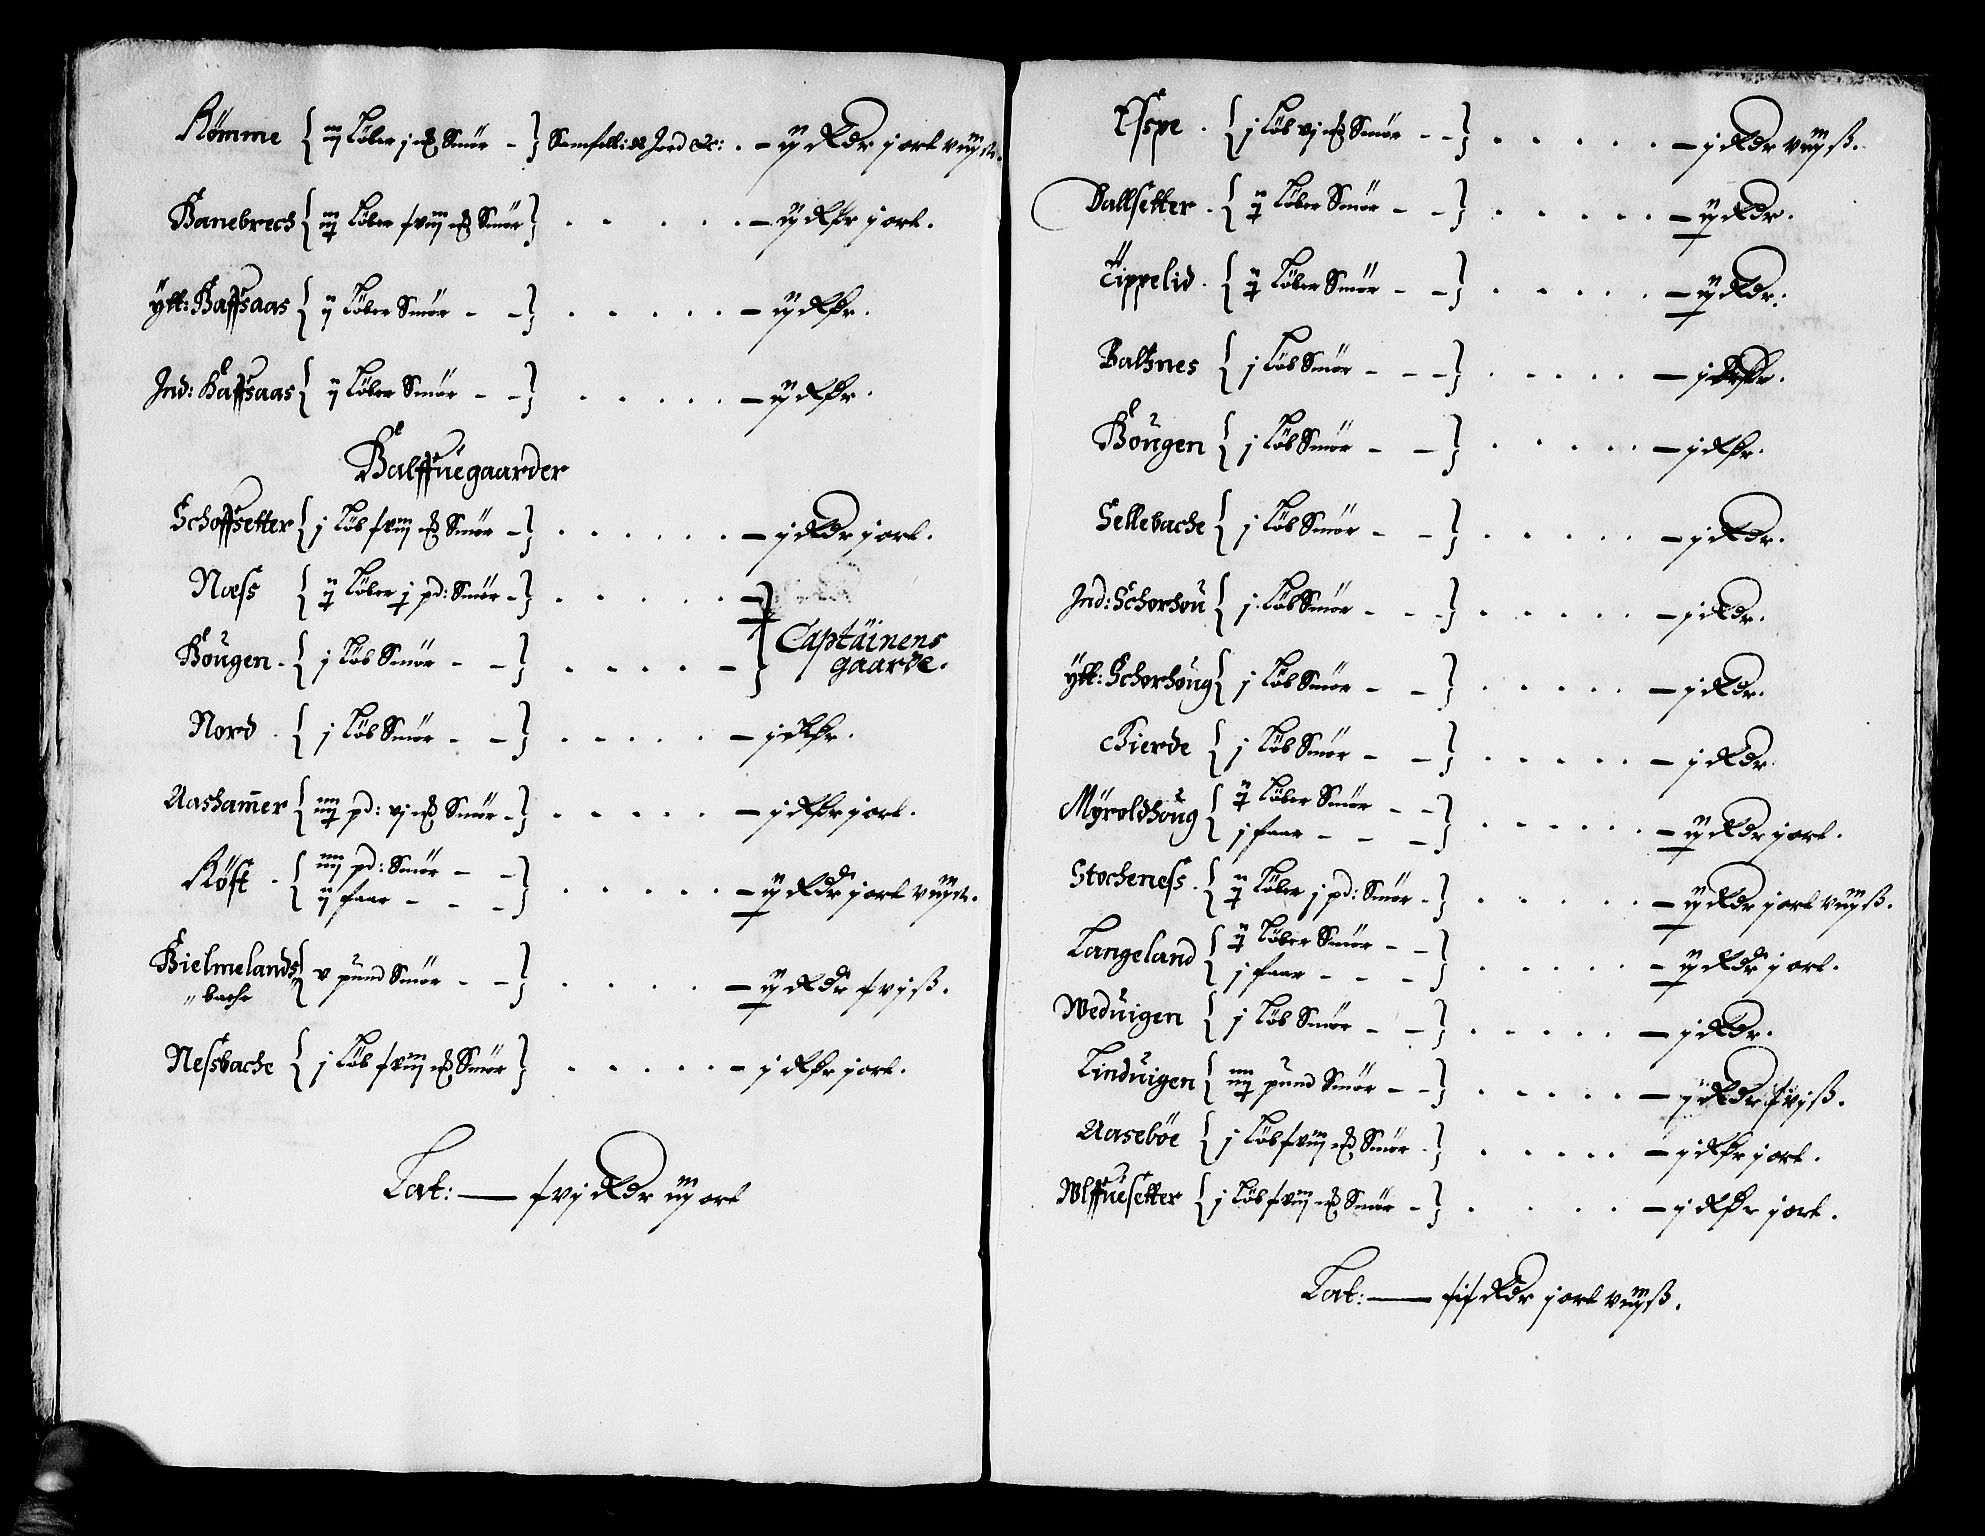 Kömme { iij Löber j m&rk Smör - } Samfell: & Jord &c: . - ij Rdr j ort viij s.
Banebrech { iij Löber xviij m&rk Smör } - ij Rdr j ort.
Ytt: Haffsaas { ij Löber Smör - - } - ij Rdr.
Ind: Haffsaas { ij Löber Smör - - } - ij Rdr.
Halffuegaarder
Schoffsetter { j Löb xviij m&rk Smör - } - j Rdr j ort.
Næss { ij Löber j pd: Smör - } -
Höugen . { j Löb Smör - - } - } Captäinens
gaarde.
Nord . { j Löb Smör - - } - j Rdr.
Aasham̄er { iiij pd: vj m&rk Smör - } - j Rdr j ort.
Röst . { iiij pd: Smör - -
ij faar - - - } - ij Rdr j ort viij s.
Hielmelands { v pund Smör - - } - ij Rdr xvj ß.
" bache
Nessbache { j Löb xviij m&rk Smör } - j Rdr j ort.
Lat: — xvj Rdr iij ort
Esspe . { j Löb vj m&rk Smör - - } - j Rdr viij ß.
Dallsetter . { ij Löber Smör - - } - ij Rdr.
Tippelid . { ij Löber Smör - - } - ij Rdr.
Baltznes { j Löb Smör - - - } - j Rdr.
Höugen { j Löb Smör - - } - j Rdr.
Sellebache { j Löb Smör - - } - j Rdr.
Ind: Schorhou { j Löb Smör - - - } - j Rdr.
Ytt: Schorhöug { j Löb Smör - - } - j Rdr.
Gierde { j Löb Smör - - } - j Rdr
Myroldhoug { ij Löber Smör - -
j faar - - - } - ij Rdr j ort.
Stocheness . { ij Löber j pd: Smör - } - ij Rdr j ort viij ß.
Langeland { ij Löber Smör - -
j faar - - - } - ij Rdr j ort.
Weduigen { j Löb Smör - - } - j Rdr.
Linduigen { iiij pund Smör - - } - j Rdr xvj ß.
Aaseböe { j Löb xviij m&rk Smör - } - j Rdr j ort.
Wlffuesetter { j Löb xviij m&rk Smör - } - j Rdr j ort.
Lat: — xix Rdr j ort viij ß.